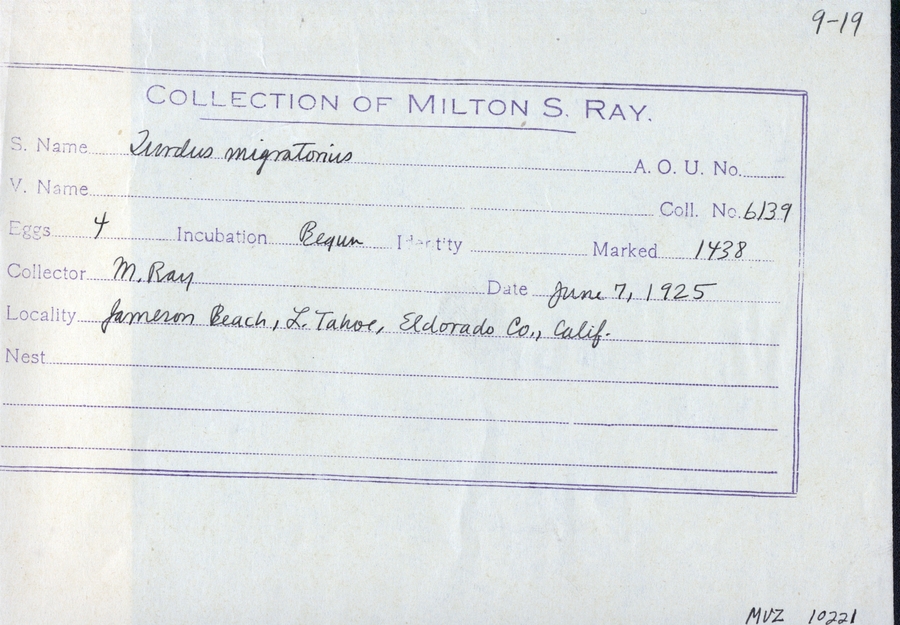 9-19
COLLECTION OF MILTON S. RAY.
S. Name Turdus migratorius A. O. U. No.
V. Name Coll. No. 6139
Eggs 4 Incubation Begun Identity Marked 1438
Collector M. Ray Date June 7, 1925
Locality Jameson Beach, L. Tahoe, Eldorado Co., Calif.
Nest
MVZ 10221